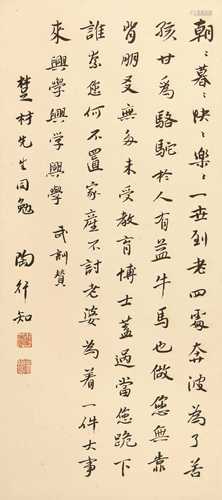 朝〻暮〻快〻樂〻一世到老四處奔波為了苦
孩甘為駱駝於人有益牛馬也做您無靠
背朋友無多未受教育博士蓋過當您跪下
誰崇您何不置家產不討老婆為着一件大事
來興學興学興學 武訓贊
楚村先生同勉 陶行知